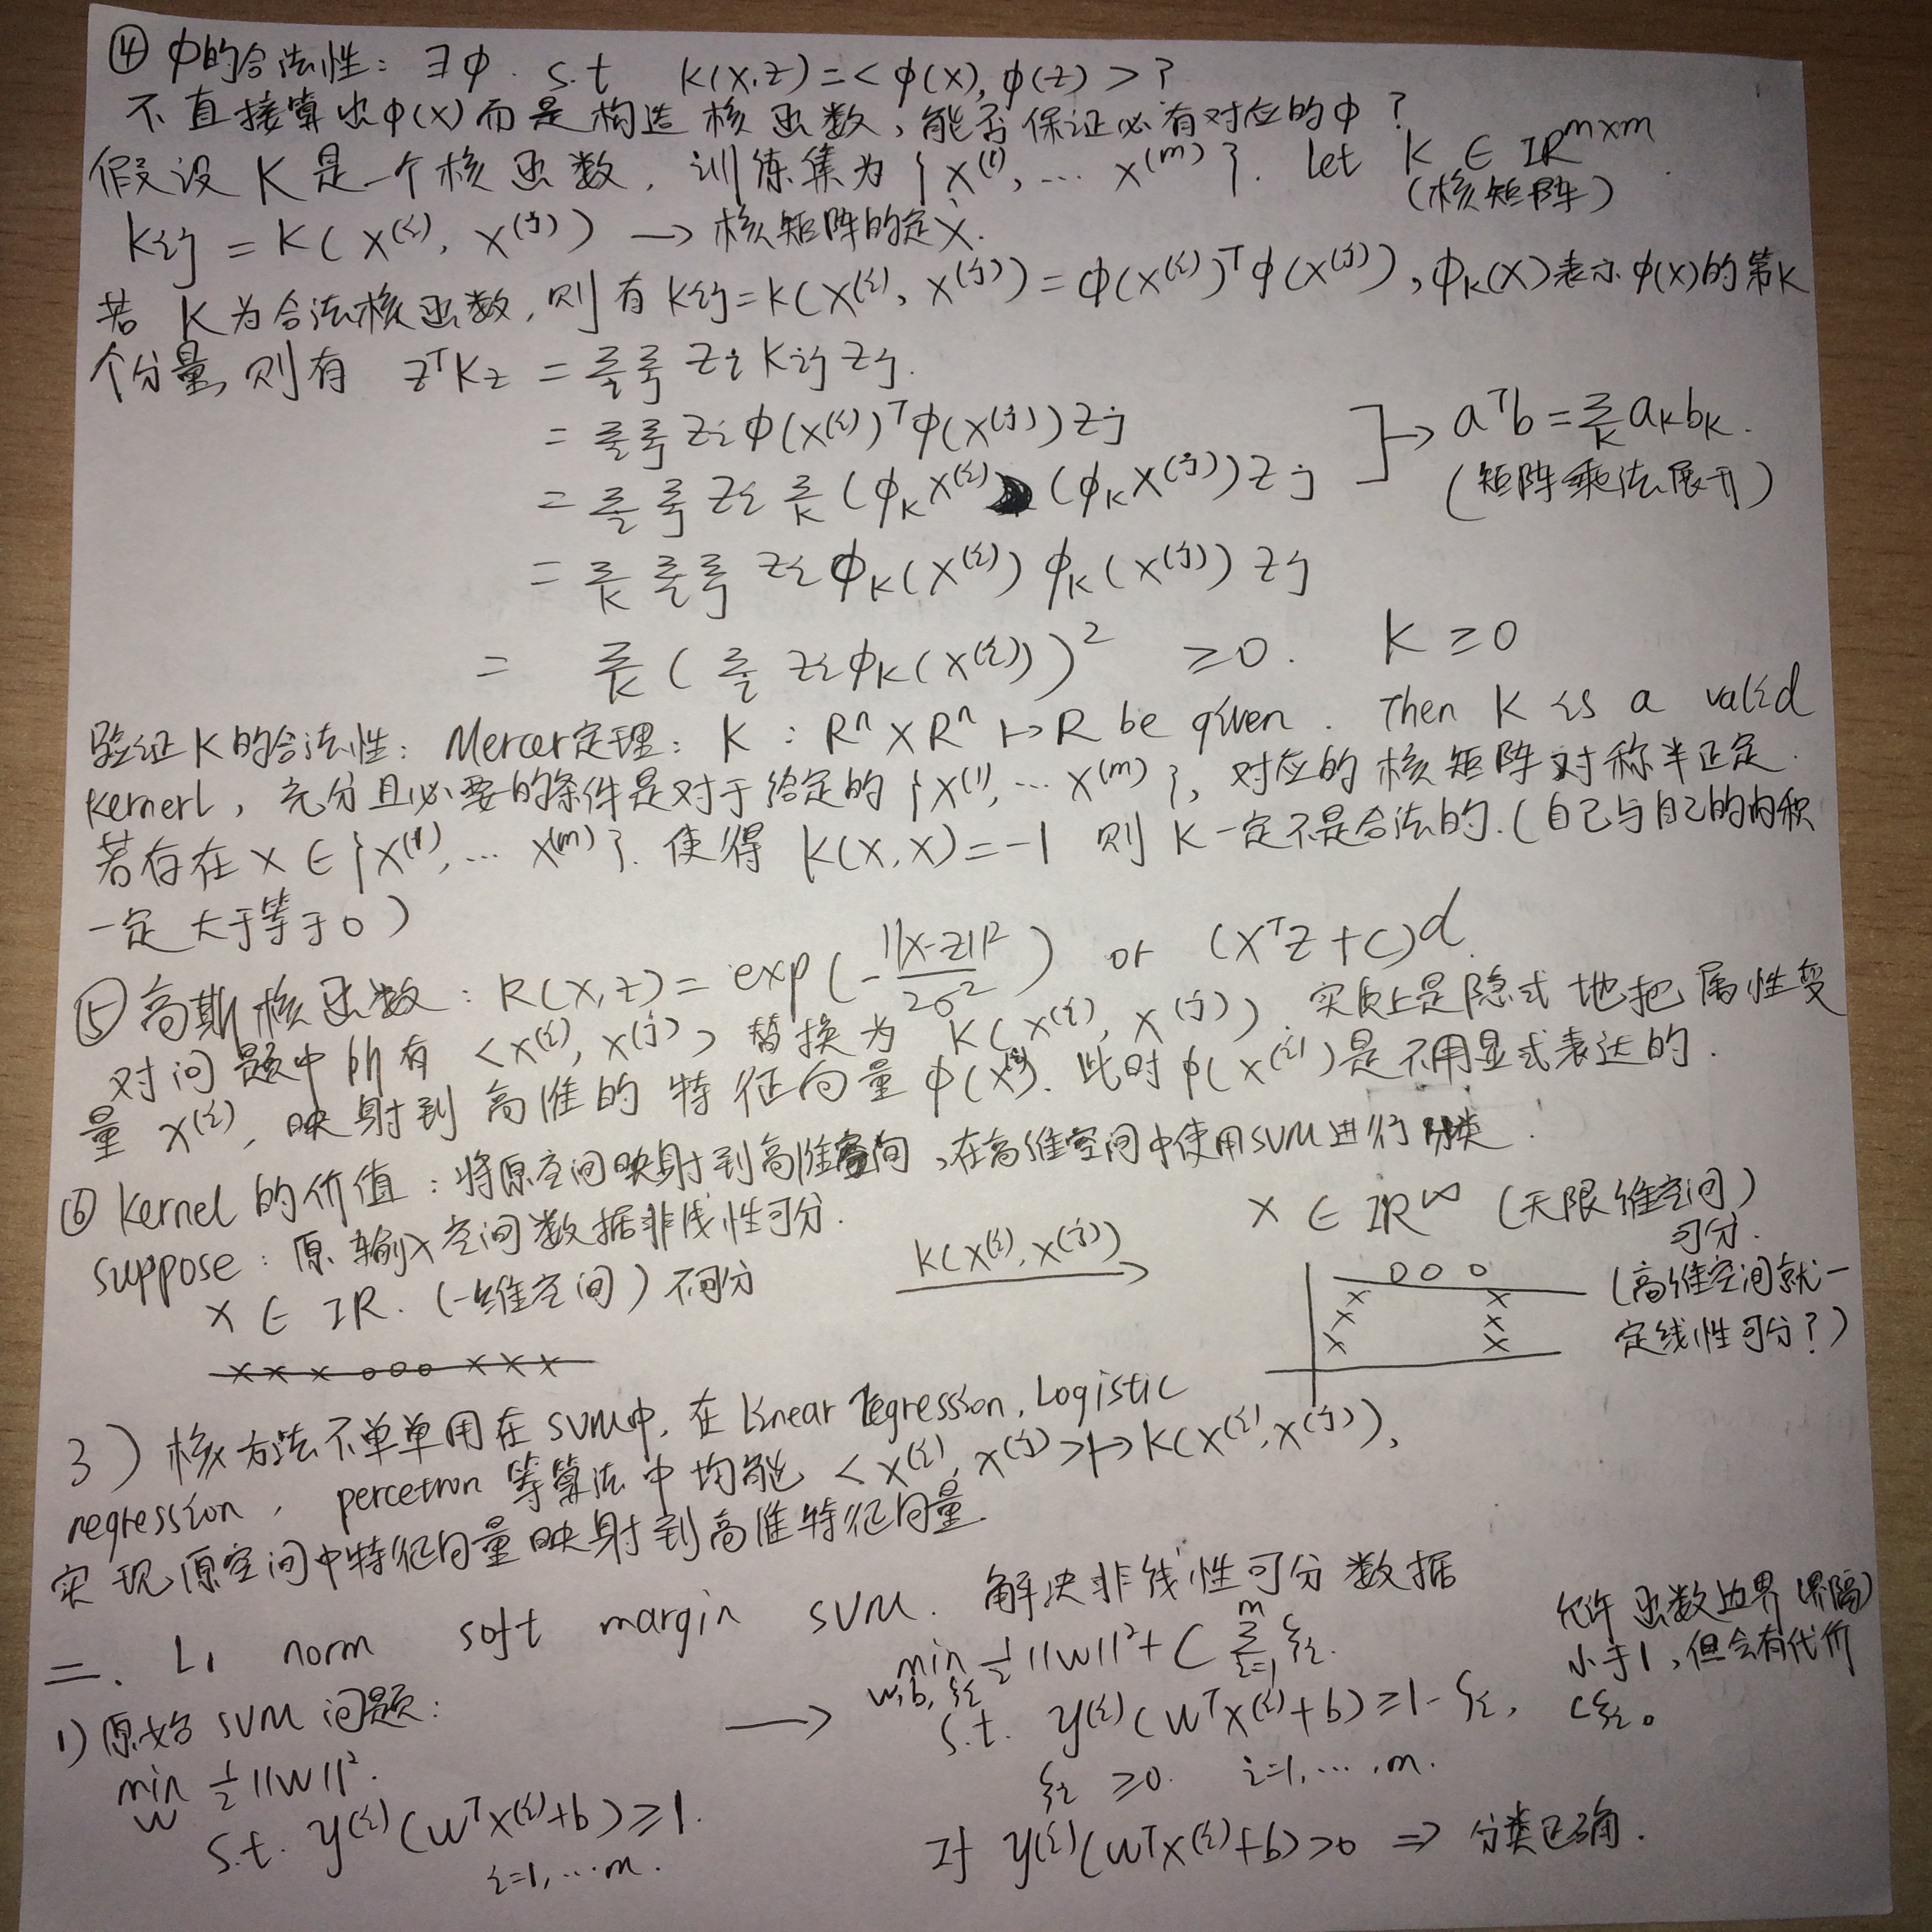 ④ φ的合法性: ∃φ. s.t K(x,z)=<φ(x),φ(z)>?
不直接算出φ(x)而是构造核函数,能否保证必有对应的φ?
假设K是一个核函数,训练集为{x⁽¹⁾,… x⁽ᵐ⁾}. Let K ∈ ℝᵐˣᵐ
(核矩阵)
Kij = K(x⁽ⁱ⁾, x⁽ʲ⁾) → 核矩阵的定义.
若K为合法核函数,则有Kij=K(x⁽ⁱ⁾, x⁽ʲ⁾)=φ(x⁽ⁱ⁾)ᵀφ(x⁽ʲ⁾),φk(x)表示φ(x)的第k
个分量,则有 zᵀKz = Σi Σj zi Kij zj.
= Σi Σj zi φ(x⁽ⁱ⁾)ᵀφ(x⁽ʲ⁾) zj
= Σi Σj zi Σk (φk x⁽ⁱ⁾) (φk x⁽ʲ⁾) zj
→ aᵀb = Σk ak bk.
(矩阵乘法展开)
= Σk Σi Σj zi φk(x⁽ⁱ⁾) φk(x⁽ʲ⁾) zj
= Σk (Σi zi φk(x⁽ⁱ⁾))² ≥0. K ≥0
验证K的合法性: Mercer定理: K : Rⁿ×Rⁿ ↦R be given. Then K is a valid
kernerl, 充分且必要的条件是对于给定的{x⁽¹⁾,… x⁽ᵐ⁾}, 对应的核矩阵对称半正定.
若存在x∈{x⁽¹⁾,… x⁽ᵐ⁾}. 使得 K(x,x)=-1 则K一定不是合法的.(自己与自己的内积
一定大于等于0)
⑤高斯核函数: K(x,z)= exp(-||x-z||²/2σ²) or (xᵀz+c)ᵈ
对问题中所有<x⁽ⁱ⁾, x⁽ʲ⁾>替换为K(x⁽ⁱ⁾, x⁽ʲ⁾). 实质上是隐式地把属性变
量x⁽ⁱ⁾, 映射到高维的特征向量φ(x⁽ⁱ⁾). 此时φ(x⁽ⁱ⁾)是不用显式表达的.
⑥ Kernel的价值: 将原空间映射到高维空间,在高维空间中使用SVM进行分类.
suppose: 原输入空间数据非线性可分.
x ∈ ℝ. (一维空间) 不可分
K(x⁽ⁱ⁾, x⁽ʲ⁾)
x ∈ ℝ^∞ (无限维空间)
可分.
(高维空间就一
定线性可分?)
x x x o o o x x x
o o o
x x
x x
x x
3) 核方法不单单用在SVM中, 在Linear regression, Logistic
regression, percetron等算法中均能<x⁽ⁱ⁾, x⁽ʲ⁾>↦K(x⁽ⁱ⁾, x⁽ʲ⁾),
实现原空间中特征向量映射到高维特征向量.
二. L₁ norm soft margin SVM. 解决非线性可分数据
1) 原始SVM问题:
min w ½||w||².
s.t. y⁽ⁱ⁾(wᵀx⁽ⁱ⁾+b)≥1.
i=1,…m.
→ min w,b,ξi ½||w||²+C Σᵐi=1 ξi.
s.t. y⁽ⁱ⁾(wᵀx⁽ⁱ⁾+b)≥1-ξi,
ξi ≥0. i=1,…,m.
允许函数边界(界隔)
小于1,但会有代价
Cξi。
If y⁽ⁱ⁾(wᵀx⁽ⁱ⁾+b)>0 ⇒ 分类正确.